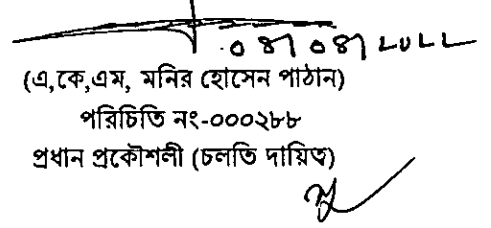 (এ,কে,এম, মনির হোসেন পাঠান)
পরিচিতি নং-০০০২৮৮
প্রধান প্রকৌশলী (চলতি দায়িত্ব)